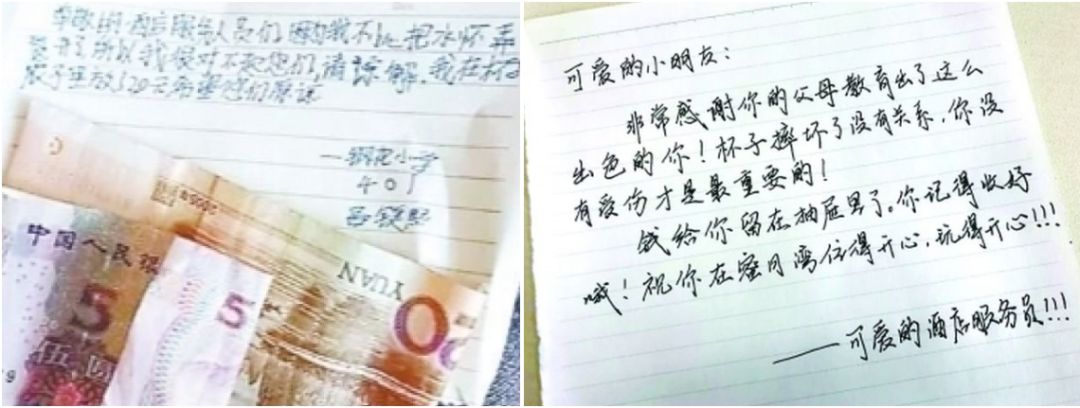 尊敬的酒店服务人员们因为我不小心把水杯弄
坏了所以我很对不起您们,请谅解,我在杯
子里放了20元希望你们原谅
—钢花小学
401
中国人民银
5
5
伍
YUAN
20
可爱的小朋友:
非常感谢你的父母教育出了这么
出色的你!杯子摔坏了没有关系,你没
有受伤才是最重要的!
钱给你留在抽屉里了。你记得收好
哦!祝你在蜜月湾住得开心,玩得开心!!!
——可爱的酒店服务员!!!